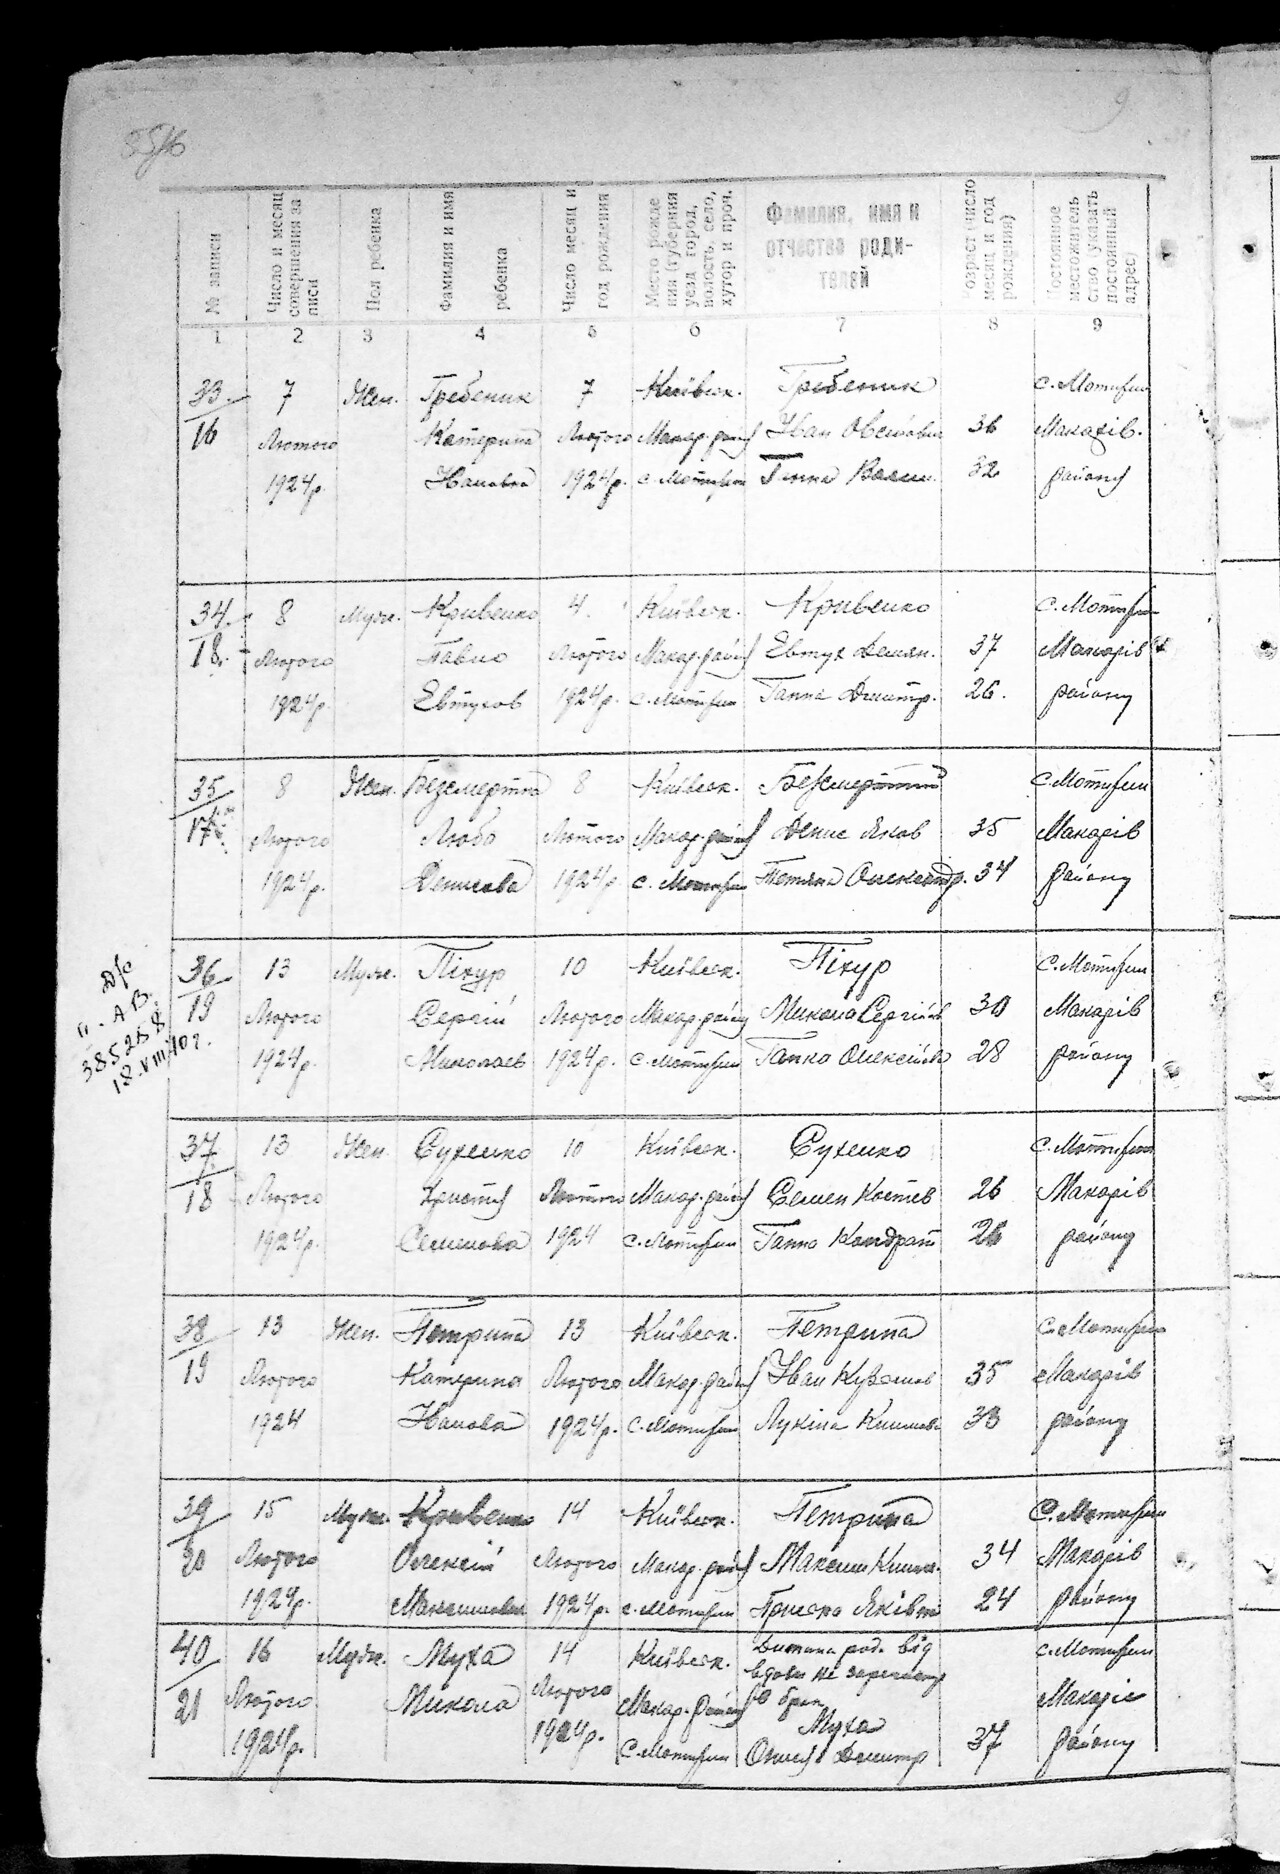 9
№ записи
Число и месяц
совершения за
писи
Пол ребенка
Фамилия и имя
ребенка
Число месяц и
год рождения
Место рожде
ния (губерния
уезд город,
волость, село,
хутор и проч.
Фамилия, имя и
отчество роди-
телей
возраст (число
месяц и год
рождения)
Постоянное
местожитель
ство (указать
постоянный
адрес)
1 2 3 4 5 6 7 8 9
33 7 Жен. Гребеник 7 Київськ. Гребеник с. Мотижин
16 Лютого Катерина Лютого Макар. район Іван 36 Макарів.
1924р. Іванова 1924р. с. Мотижин Ганна 32 району
34 8 Муж. Кривенко 4 Київськ. Кривенко с. Мотижин
18 Лютого Павло Лютого Макар. район Евтух Демян. 37 Макарів
1924р. Евтухов 1924р. с. Мотижин Ганна Дмитр. 26. району
35 8 Жен. Безсмертна 8 Київськ. Безсмертний с. Мотижин
17 Лютого Люба Лютого Макар. район Денис Яков 35 Макарів
1924р. Денисова 1924р с. Мотижин Тетяна Олександр. 34 району
36 13 Муж. Пікур 10 Київськ. Пікур с. Мотижин
19 Лютого Сергій Лютого Макар. район Микола Сергіїв 30 Макарів
1924р. Миколаєв 1924р. с. Мотижин Ганна Олексіїв 28 району
II-АВ
385258
18.VIII
37 13 Жен. Сухенко 10 Київськ. Сухенко с. Мотижин
18 Лютого Христя Лютого Макар. район Семен Костев 26 Макарів
1924р. Семенова 1924 с. Мотижин Ганна Кондрат 26 району
38 13 Жен. Петрина 13 Київськ. Петрина с. Мотижин
19 Лютого Катерина Лютого Макар. район Іван 35 Макарів
1924 Іванова 1924р. с. Мотижин Лукіна 33 району
39 15 Муж. Кривенко 14 Київськ. Петрина с. Мотижин
20 Лютого Олексій Лютого Макар. район Максим 34 Макарів
1924р. Максимович 1924р. с. Мотижин Приська Яківна 24 району
40 16 Муж. Муха 14 Київськ. Дитина род. від с. Мотижин
вдови не
21 Лютого Микола Лютого Макар. район брак Макарів
1924р. 1924р. Муха
с. Мотижин Дмитр 37 району